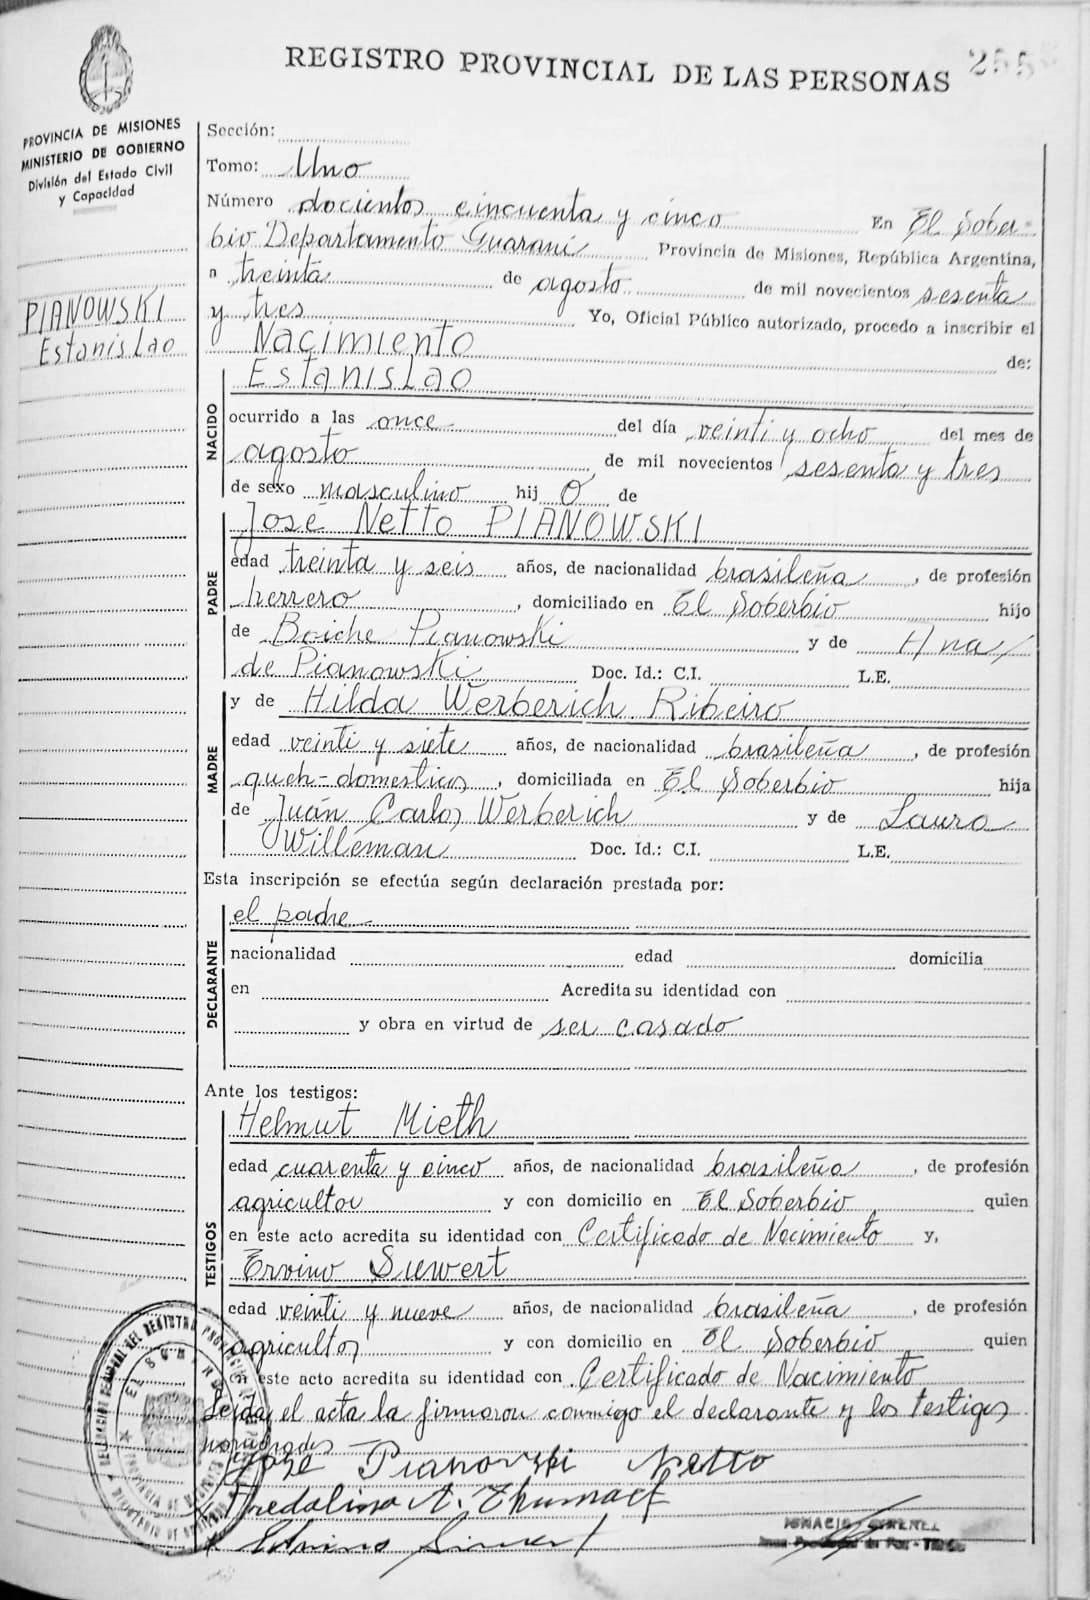 REGISTRO PROVINCIAL DE LAS PERSONAS
255
PROVINCIA DE MISIONES
MINISTERIO DE GOBIERNO
División del Estado Civil
y Capacidad
PIANOWSKI
Estanislao
Sección:
Tomo: Uno
Número docientos cincuenta y cinco En El Sober-
bio Departamento Guaraní Provincia de Misiones, República Argentina,
a treinta de agosto de mil novecientos sesenta
y tres Yo, Oficial Público autorizado, procedo a inscribir el
Nacimiento de:
NACIDO
Estanislao
ocurrido a las once del día veinti y ocho del mes de
agosto de mil novecientos sesenta y tres
de sexo masculino hij o de
PADRE
José Netto PIANOWSKI
edad treinta y seis años, de nacionalidad brasileña, de profesión
herrero, domiciliado en El Soberbio hijo
de Boiche Pianowski y de Ana/
de Pianowski Doc. Id.: C.I. L.E.
MADRE
y de Hilda Werberich Ribeiro
edad veinti y siete años, de nacionalidad brasileña, de profesión
queh-domesticos, domiciliada en El Soberbio hija
de Juán Carlos Werberich y de Laura
Willeman Doc. Id.: C.I. L.E.
Esta inscripción se efectúa según declaración prestada por:
DECLARANTE
el padre
nacionalidad edad domicilia
en Acredita su identidad con
y obra en virtud de ser casado
Ante los testigos:
TESTIGOS
Helmut Mieth
edad cuarenta y cinco años, de nacionalidad brasileña, de profesión
agricultor y con domicilio en El Soberbio quien
en este acto acredita su identidad con Certificado de Nacimiento y,
Ervino Siewert
edad veinti y nueve años, de nacionalidad brasileña, de profesión
agricultor y con domicilio en El Soberbio quien
en este acto acredita su identidad con Certificado de Nacimiento
Leída el acta la firmaron conmigo el declarante y los testigos
José Pianovski Netto
IGNACIO GIMENEZ